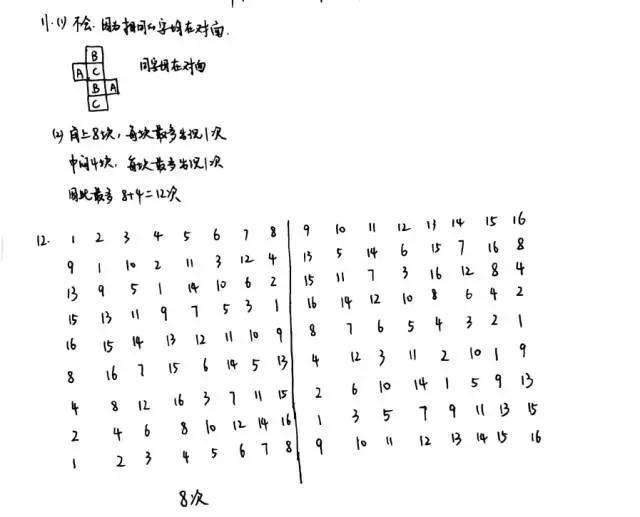 11. (1) 不会. 因为相同的字均在对面.
B
A C 同字均在对面
B A
C
(2) 角上8块, 每块最多出现1次
中间4块, 每块最多出现1次
因此最多 8+4=12次
12. 1 2 3 4 5 6 7 8 9 10 11 12 13 14 15 16
9 1 10 2 11 3 12 4 13 5 14 6 15 7 16 8
13 9 5 1 14 10 6 2 15 11 7 3 16 12 8 4
15 13 11 9 7 5 3 1 16 14 12 10 8 6 4 2
16 15 14 13 12 11 10 9 8 7 6 5 4 3 2 1
8 16 7 15 6 14 5 13 4 12 3 11 2 10 1 9
4 8 12 16 3 7 11 15 2 6 10 14 1 5 9 13
2 4 6 8 10 12 14 16 1 3 5 7 9 11 13 15
1 2 3 4 5 6 7 8 9 10 11 12 13 14 15 16
8次